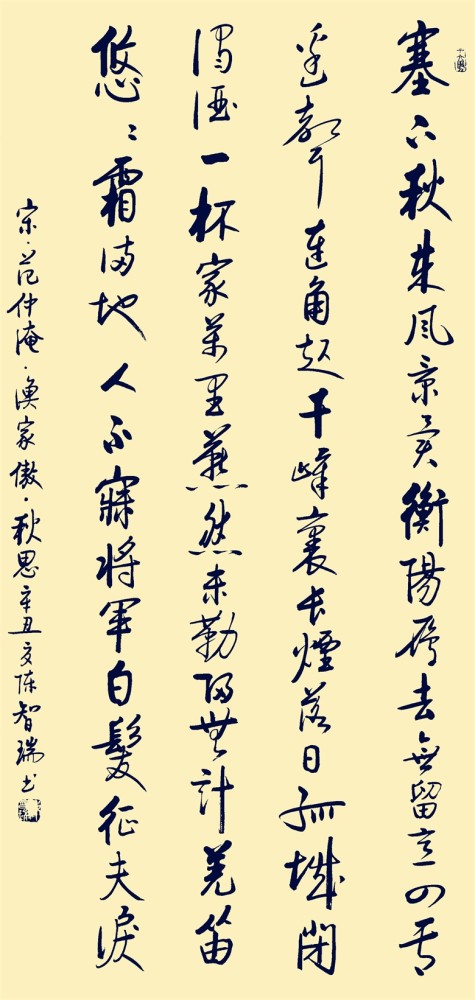 塞下秋来风景异衡陽雁去無留意四面
邊聲連角起千嶂裏長煙落日孤城閉
濁酒一杯家萬里燕然未勒歸無計羌笛
悠々霜滿地人不寐將軍白髮征夫淚
宋·范仲淹·漁家傲·秋思辛丑夏陳智瑞书